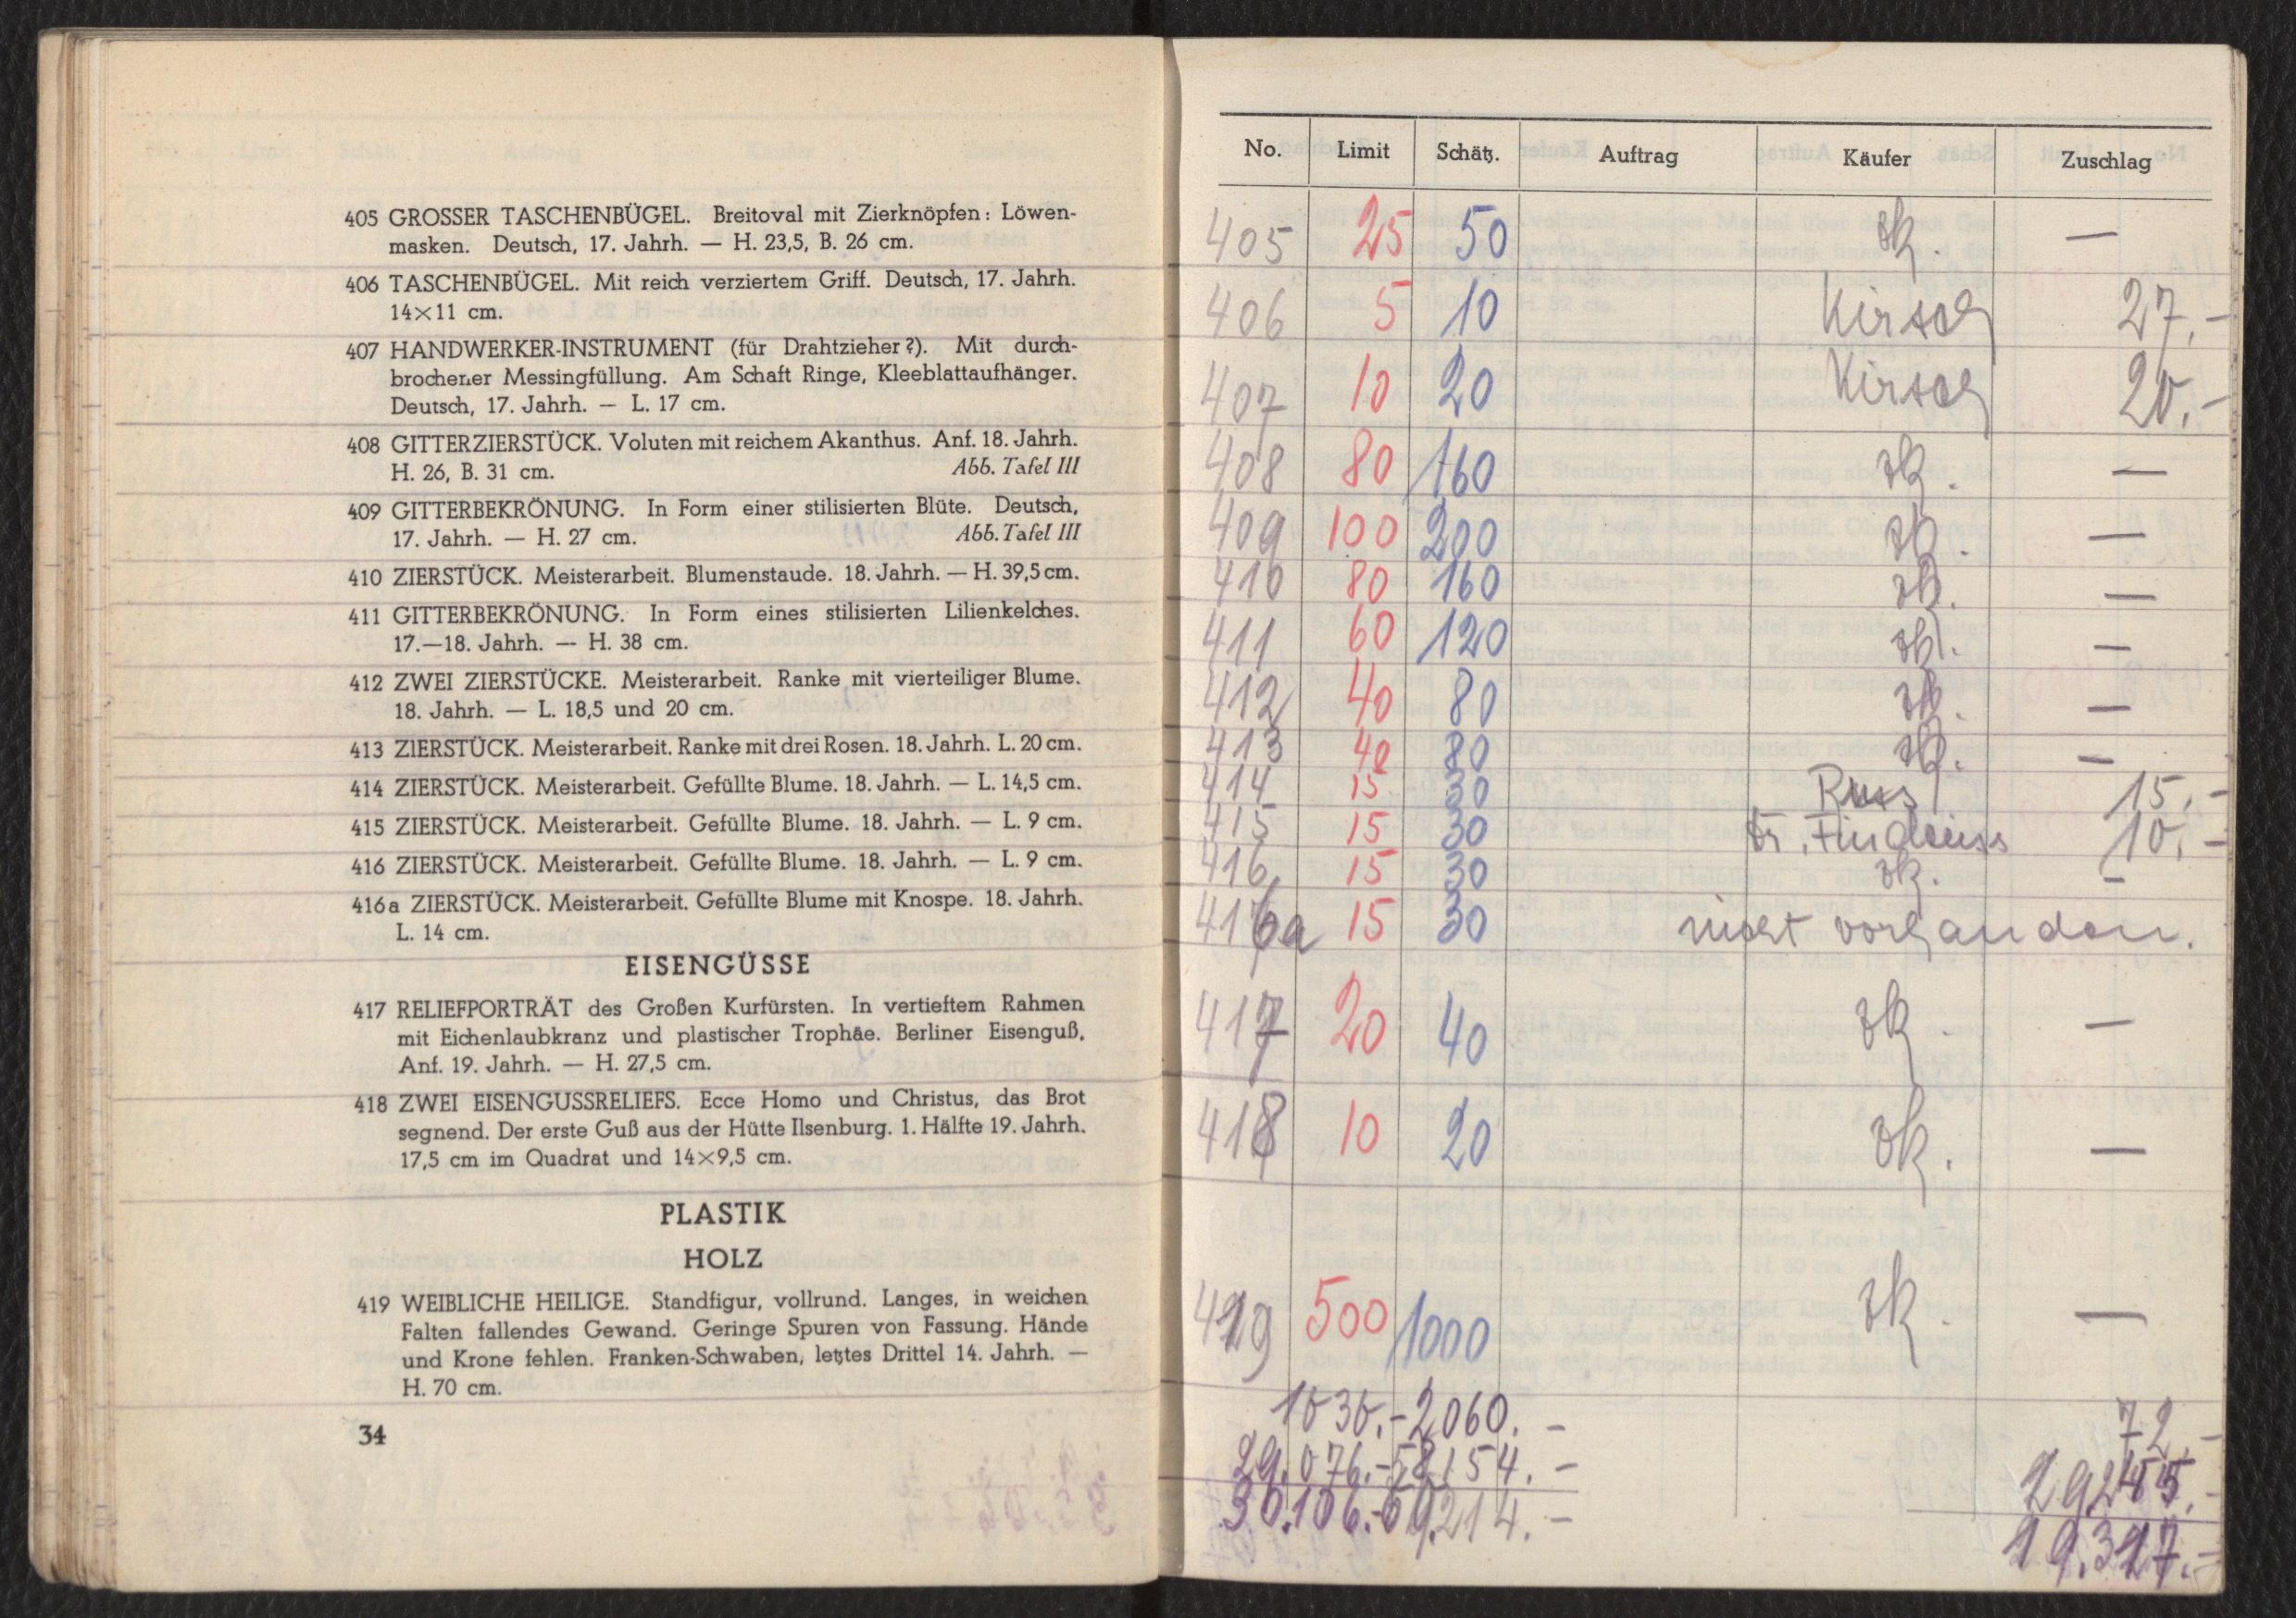 405 GROSSER TASCHENBÜGEL. Breitoval mit Zierknöpfen: Löwen-
masken. Deutsch, 17. Jahrh. — H. 23,5, B. 26 cm.
406 TASCHENBÜGEL. Mit reich verziertem Griff. Deutsch, 17. Jahrh.
14×11 cm.
407 HANDWERKER-INSTRUMENT (für Drahtzieher?). Mit durch-
brochener Messingfüllung. Am Schaft Ringe, Kleeblattaufhänger.
Deutsch, 17. Jahrh. — L. 17 cm.
408 GITTERZIERSTÜCK. Voluten mit reichem Akanthus. Anf. 18. Jahrh.
H. 26, B. 31 cm. Abb. Tafel III
409 GITTERBEKRÖNUNG. In Form einer stilisierten Blüte. Deutsch,
17. Jahrh. — H. 27 cm. Abb. Tafel III
410 ZIERSTÜCK. Meisterarbeit. Blumenstaude. 18. Jahrh. — H. 39,5 cm.
411 GITTERBEKRÖNUNG. In Form eines stilisierten Lilienkelches.
17.—18. Jahrh. — H. 38 cm.
412 ZWEI ZIERSTÜCKE. Meisterarbeit. Ranke mit vierteiliger Blume.
18. Jahrh. — L. 18,5 und 20 cm.
413 ZIERSTÜCK. Meisterarbeit. Ranke mit drei Rosen. 18. Jahrh. L. 20 cm.
414 ZIERSTÜCK. Meisterarbeit. Gefüllte Blume. 18. Jahrh. — L. 14,5 cm.
415 ZIERSTÜCK. Meisterarbeit. Gefüllte Blume. 18. Jahrh. — L. 9 cm.
416 ZIERSTÜCK. Meisterarbeit. Gefüllte Blume. 18. Jahrh. — L. 9 cm.
416a ZIERSTÜCK. Meisterarbeit. Gefüllte Blume mit Knospe. 18. Jahrh.
L. 14 cm.
EISENGÜSSE
417 RELIEFPORTRÄT des Großen Kurfürsten. In vertieftem Rahmen
mit Eichenlaubkranz und plastischer Trophäe. Berliner Eisenguß,
Anf. 19. Jahrh. — H. 27,5 cm.
418 ZWEI EISENGUSSRELIEFS. Ecce Homo und Christus, das Brot
segnend. Der erste Guß aus der Hütte Ilsenburg. 1. Hälfte 19. Jahrh.
17,5 cm im Quadrat und 14×9,5 cm.
PLASTIK
HOLZ
419 WEIBLICHE HEILIGE. Standfigur, vollrund. Langes, in weichen
Falten fallendes Gewand. Geringe Spuren von Fassung. Hände
und Krone fehlen. Franken-Schwaben, letztes Drittel 14. Jahrh. —
H. 70 cm.
34
No. Limit Schätz. Auftrag Käufer Zuschlag
405 25 50 zk. —
406 5 10 Kirsch 27.-
407 10 20 Kirsch 20.-
408 80 160 zk. —
409 100 200 zk. —
410 80 160 zk. —
411 60 120 zk. —
412 40 80 zk. —
413 40 80 zk. —
414 15 30 Russ 15.-
415 15 30 Dr. 10.-
416 15 30 zk. —
416a 15 30 nicht vorhanden.
417 20 40 zk. —
418 10 20 zk. —
419 500 1000 zk. —
1030.- 2060.- 72.-
29.076.- 58154.-
30.106.- 19.317.-